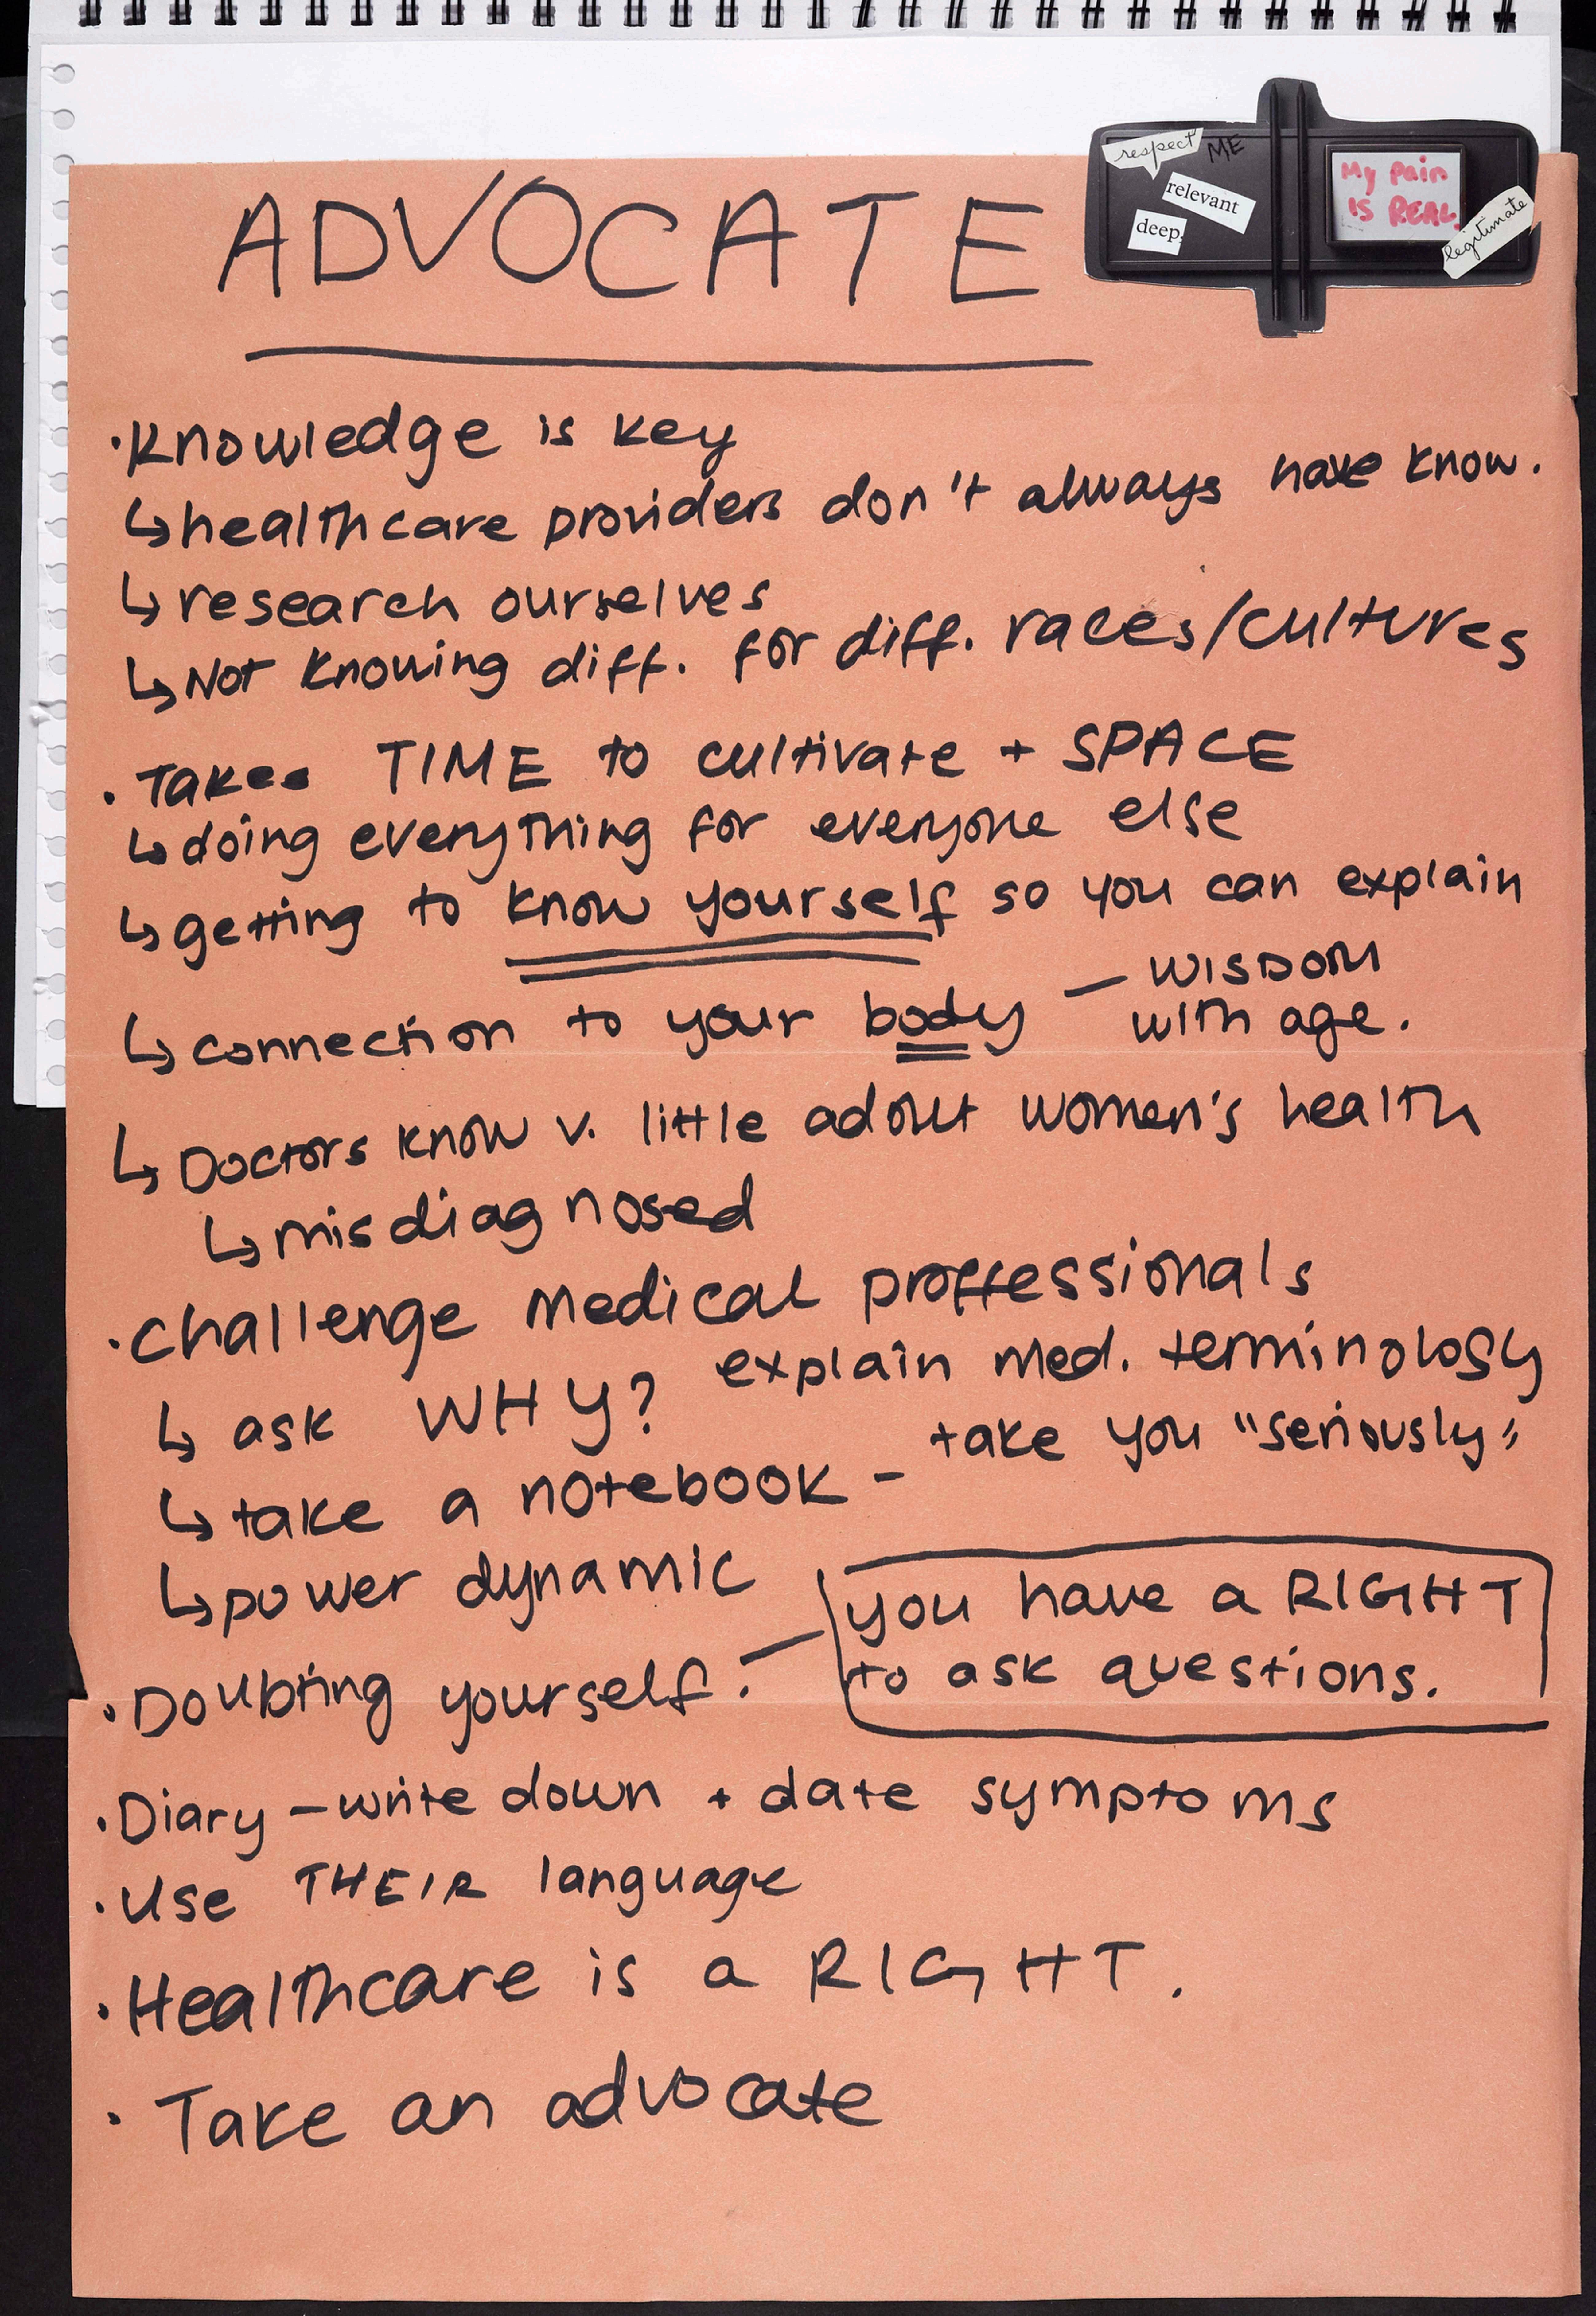 respect ME
relevant
deep.
My pain
IS REAL
legitimate
ADVOCATE
·Knowledge is key
↳healthcare providers don't always have know.
↳research ourselves
↳Not knowing diff. for diff. races/cultures
·Takes TIME to cultivate + SPACE
↳doing everything for everyone else
↳getting to know yourself so you can explain
↳connection to your body – WISDOM
with age.
↳Doctors know v. little adout women's health
↳misdiagnosed
·Challenge medical proffessionals
↳ask WHY? explain med. terminology
↳take a notebook – take you "seriously"
↳power dynamic
·Doubting yourself. – you have a RIGHT
to ask questions.
·Diary – write down + date symptoms
·Use THEIR language
·Healthcare is a RIGHT.
·Take an advocate